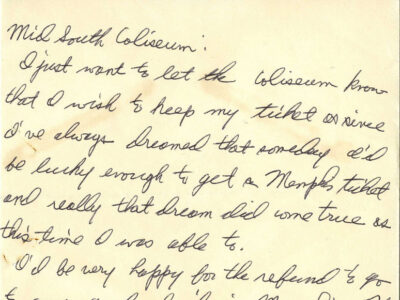 Mid South Coliseum:
I just want to let the Coliseum know
that I wish to keep my ticket as since
I've always dreamed that someday I'd
be lucky enough to get a Memphis ticket
and really that dream did come true as
this time I was able to.
I'd be very happy for the refund to go
to